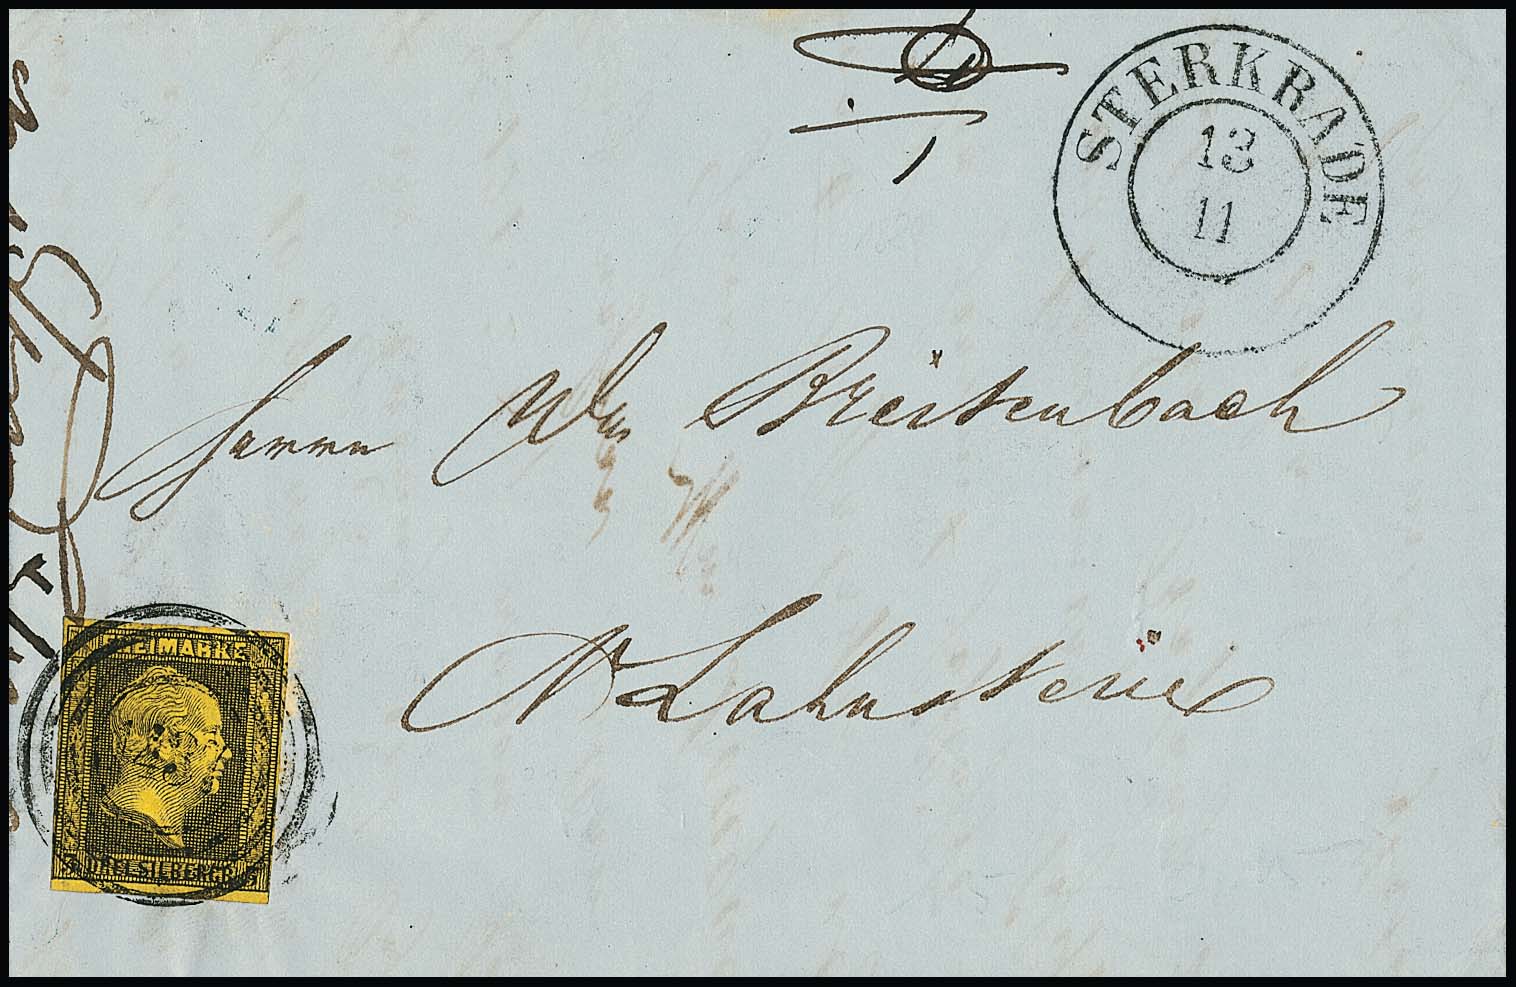 STERKRADE
13
11
Herrn Wm Breitenbach
N Lahnstein
FREIMARKE
DREI SILBERGR